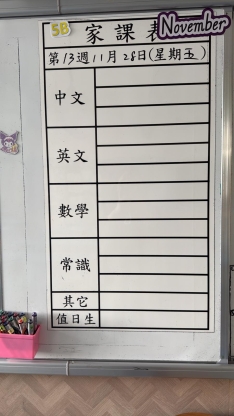 5B 家課表 November
第13週11月28日(星期五)
中文
英文
數學
常識
其它
值日生